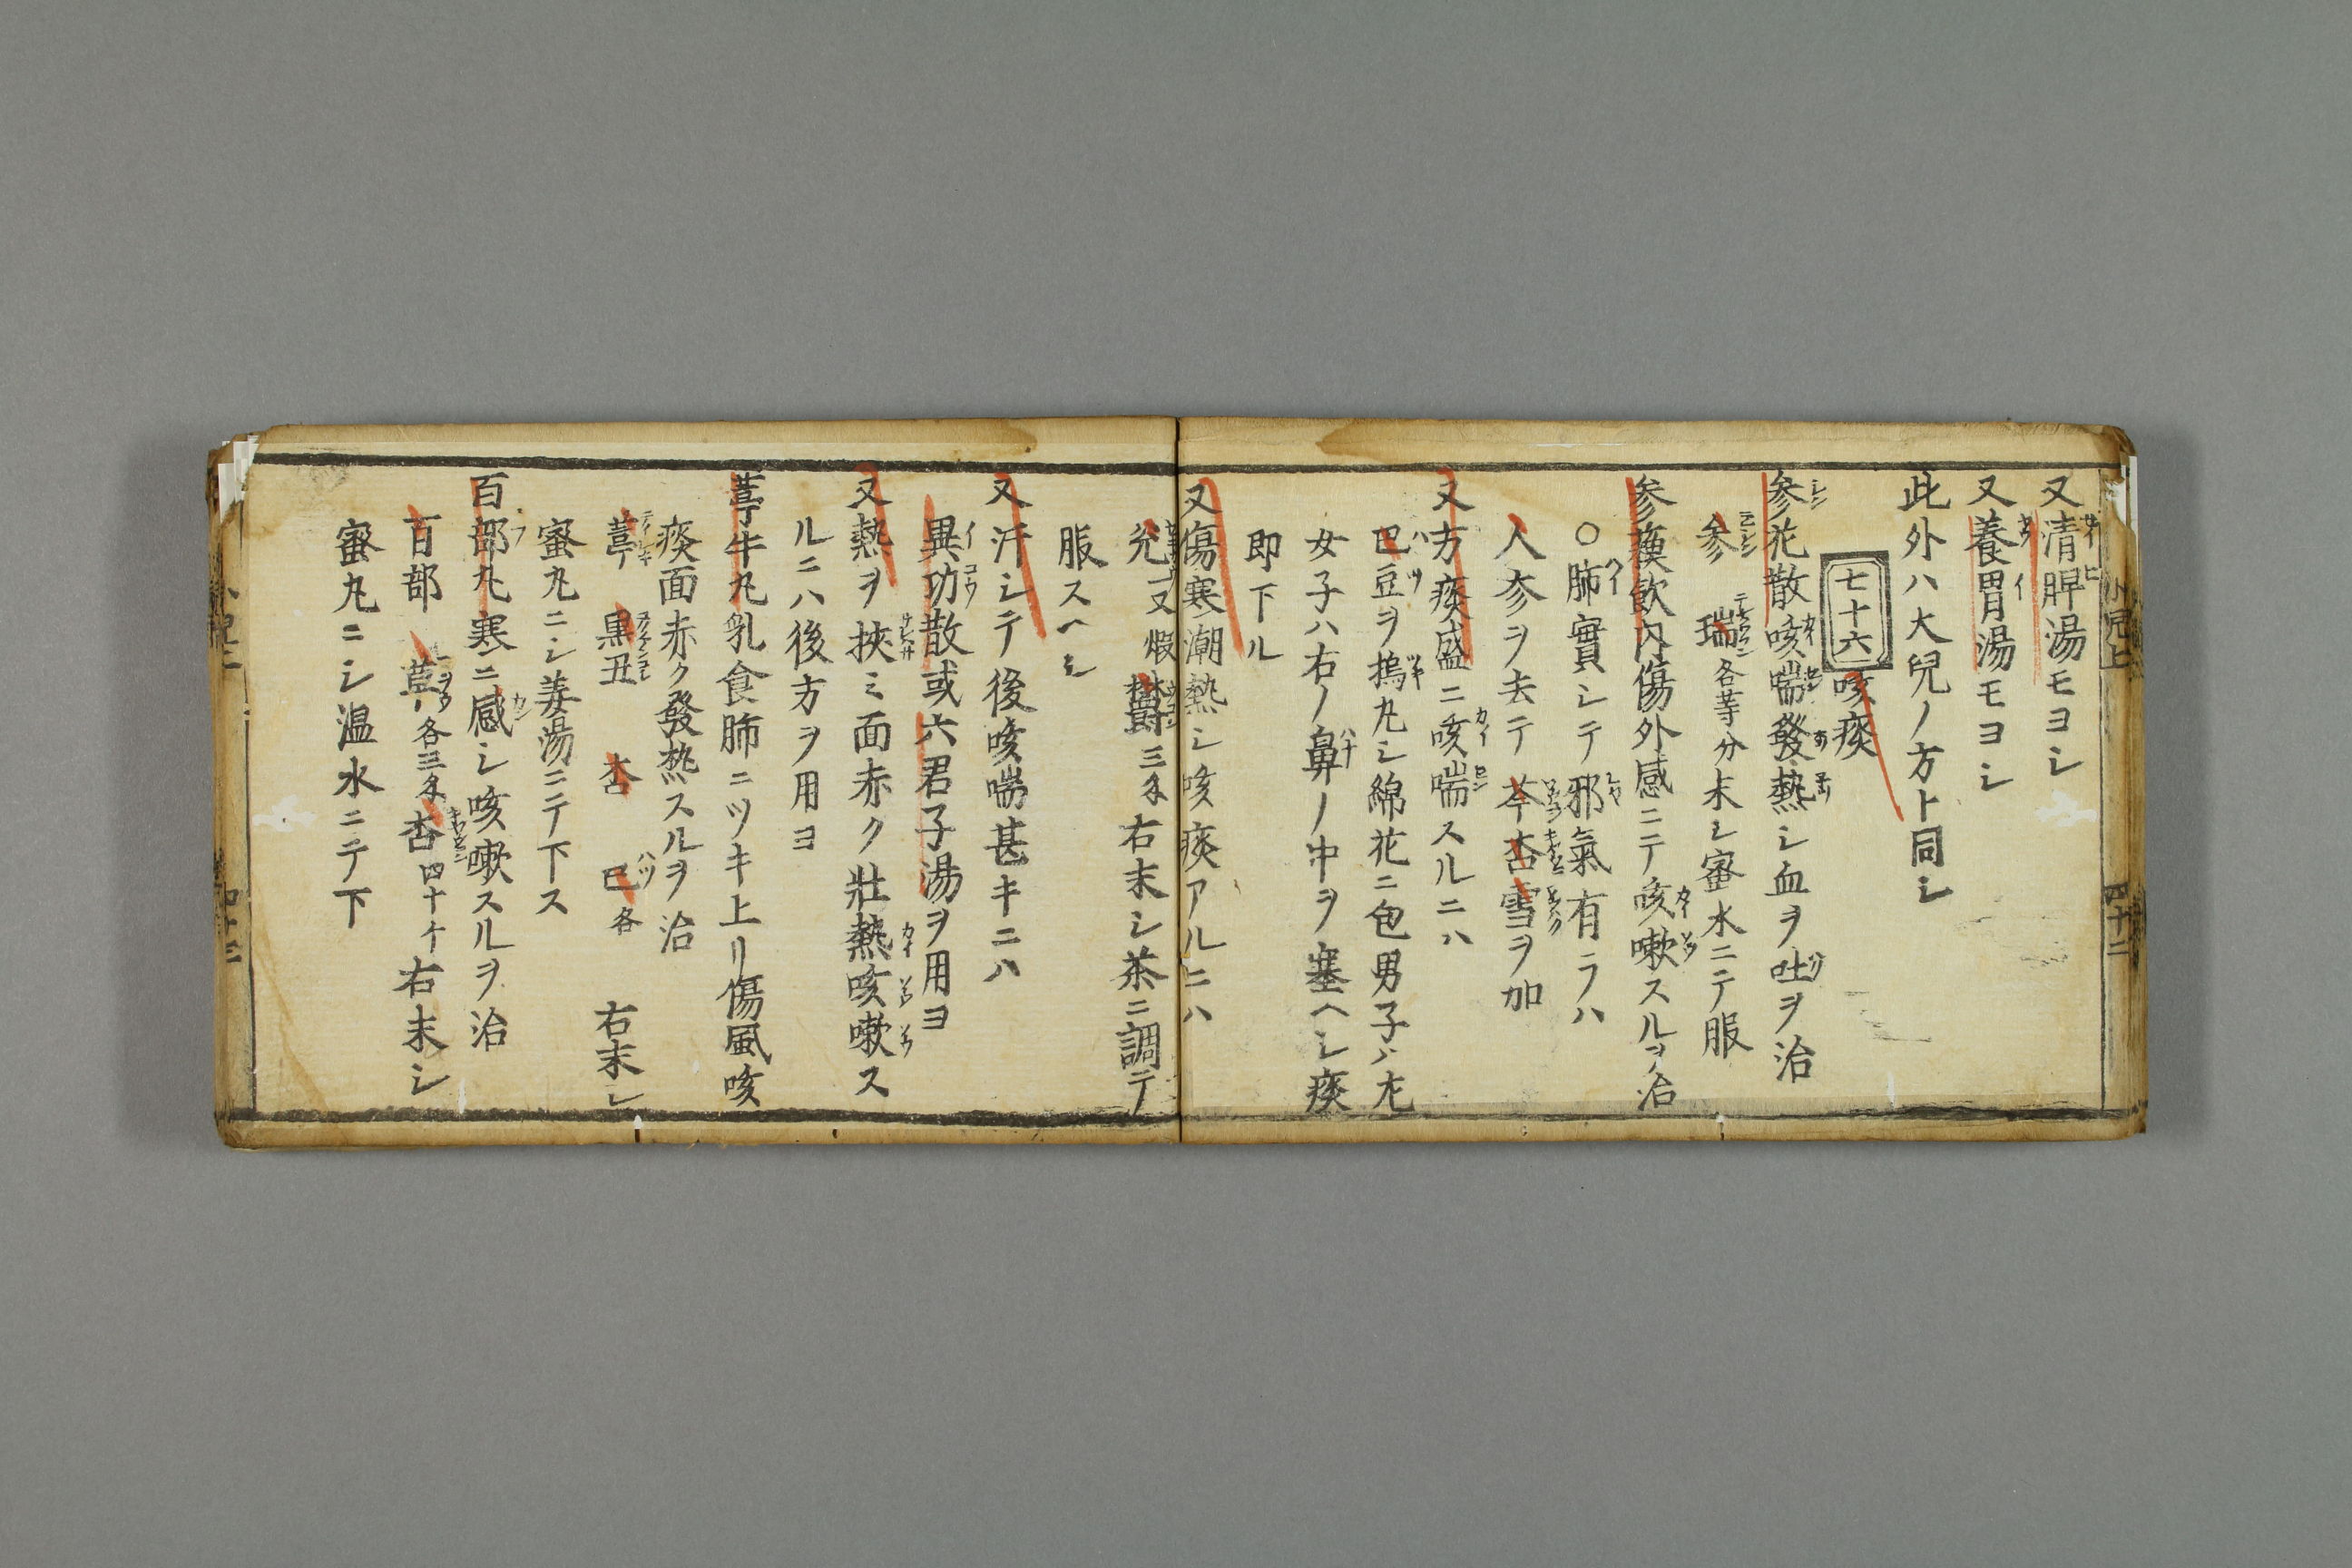 又清脾湯モヨシ
又養胃湯モヨシ
此外ハ大兒ノ方ト同シ
七十六 咳痰
参花散咳喘發熱シ血ヲ吐ヲ治
参 瑞各等分末シ蜜水ニテ服
参蘓飲内傷外感ニテ咳嗽スルヲ治
○肺實シテ邪氣有ラハ
人参ヲ去テ芩杏雪ヲ加
又方痰盛ニ咳喘スルニハ
巴豆ヲ搗丸シ綿花ニ包男子ハ左
女子ハ右ノ鼻ノ中ヲ塞ヘシ痰
即下ル
又傷寒潮熱シ咳痰アルニハ
又煆 欝三匁右末シ茶ニ調テ
服スヘシ
又汗シテ後咳喘甚キニハ
異功散或六君子湯ヲ用ヨ
又熱ヲ挾ミ面赤ク壯熱咳嗽ス
ルニハ後方ヲ用ヨ
葶牛丸乳食肺ニツキ上リ傷風咳
痰面赤ク發热スルヲ治
葶 黒丑 杏 巴各 右末シ
蜜丸ニシ姜湯ニテ下ス
百部丸寒ニ感シ咳嗽スルヲ治
百部 各三匁杏四十ケ右末シ
蜜丸ニシ温水ニテ下
小兒上
四十二